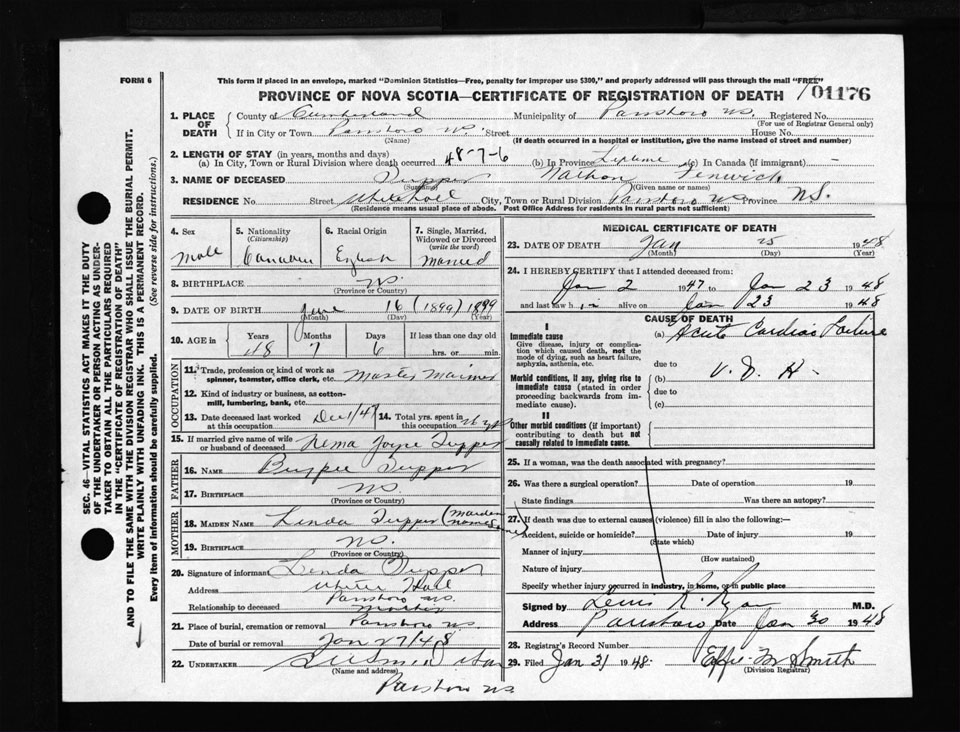 FORM 6
This form if placed in an envelope, marked "Dominion Statistics—Free, penalty for improper use $300," and properly addressed will pass through the mail "FREE"
PROVINCE OF NOVA SCOTIA—CERTIFICATE OF REGISTRATION OF DEATH
01176
1. PLACE OF DEATH
County of Cumberland Municipality of Parrsboro NS. Registered No.
(For use of Registrar General only)
If in City or Town Parrsboro NS. Street House No.
(Name) (If death occurred in a hospital or institution, give the name instead of street and number)
2. LENGTH OF STAY (in years, months and days)
(a) In City, Town or Rural Division where death occurred 48-7-6 (b) In Province Lifetime (c) In Canada (if immigrant) -
3. NAME OF DECEASED Tupper Nathan Fenwick
(Surname) (Given name or names)
RESIDENCE No. Street Whitehall City, Town or Rural Division Parrsboro NS Province NS.
(Residence means usual place of abode. Post Office Address for residents in rural parts not sufficient)
4. Sex
Male
5. Nationality (Citizenship)
Canadian
6. Racial Origin
English
7. Single, Married, Widowed or Divorced (write the word)
Married
8. BIRTHPLACE NS.
(Province or Country)
9. DATE OF BIRTH June 16 (1899) 1899
(Month) (Day) (Year)
10. AGE in Years Months Days If less than one day old
48 7 6 hrs. or min.
OCCUPATION
11. Trade, profession or kind of work as spinner, teamster, office clerk, etc. Master Mariner
12. Kind of industry or business, as cotton-mill, lumbering, bank, etc.
13. Date deceased last worked at this occupation Dec 1/47
14. Total yrs. spent in this occupation
15. If married give name of wife or husband of deceased Joyce Tupper
FATHER
16. NAME Burpee Tupper
17. BIRTHPLACE NS.
(Province or Country)
MOTHER
18. MAIDEN NAME Linda Tupper (maiden name same)
19. BIRTHPLACE NS.
(Province or Country)
20. Signature of informant Linda Tupper
Address White Hall
Parrsboro NS.
Relationship to deceased Mother
21. Place of burial, cremation or removal Parrsboro NS
Date of burial or removal Jan 27/48
22. UNDERTAKER
(Name and address)
Parrsboro NS
MEDICAL CERTIFICATE OF DEATH
23. DATE OF DEATH Jan 25 1948
(Month) (Day) (Year)
24. I HEREBY CERTIFY that I attended deceased from:
Jan 2 1947 to Jan 23 1948
and last saw him alive on Jan 23 1948
CAUSE OF DEATH
I
Immediate cause
Give disease, injury or complication which caused death, not the mode of dying, such as heart failure, asphyxia, asthenia, etc.
(a) Acute Cardiac Failure
due to
Morbid conditions, if any, giving rise to immediate cause (stated in order proceeding backwards from immediate cause).
(b) V. D. H.
due to
(c)
II
Other morbid conditions (if important) contributing to death but not causally related to immediate cause.
25. If a woman, was the death associated with pregnancy?
26. Was there a surgical operation? Date of operation 19
State findings Was there an autopsy?
27. If death was due to external causes (violence) fill in also the following:—
Accident, suicide or homicide? Date of injury 19
(State which)
Manner of injury
(How sustained)
Nature of injury
Specify whether injury occurred in industry, in home, or in public place
Signed by Lewis R. Ryan M.D.
Address Parrsboro Date Jan 30 1948
28. Registrar's Record Number
29. Filed Jan 31 1948. Effie M Smith
(Division Registrar)
SEC. 46—VITAL STATISTICS ACT MAKES IT THE DUTY OF THE UNDERTAKER OR PERSON ACTING AS UNDERTAKER TO OBTAIN ALL THE PARTICULARS REQUIRED IN THE "CERTIFICATE OF REGISTRATION OF DEATH"
AND TO FILE THE SAME WITH THE DIVISION REGISTRAR WHO SHALL ISSUE THE BURIAL PERMIT.
WRITE PLAINLY WITH UNFADING INK. THIS IS A PERMANENT RECORD.
Every item of information should be carefully supplied. (See reverse side for instructions.)